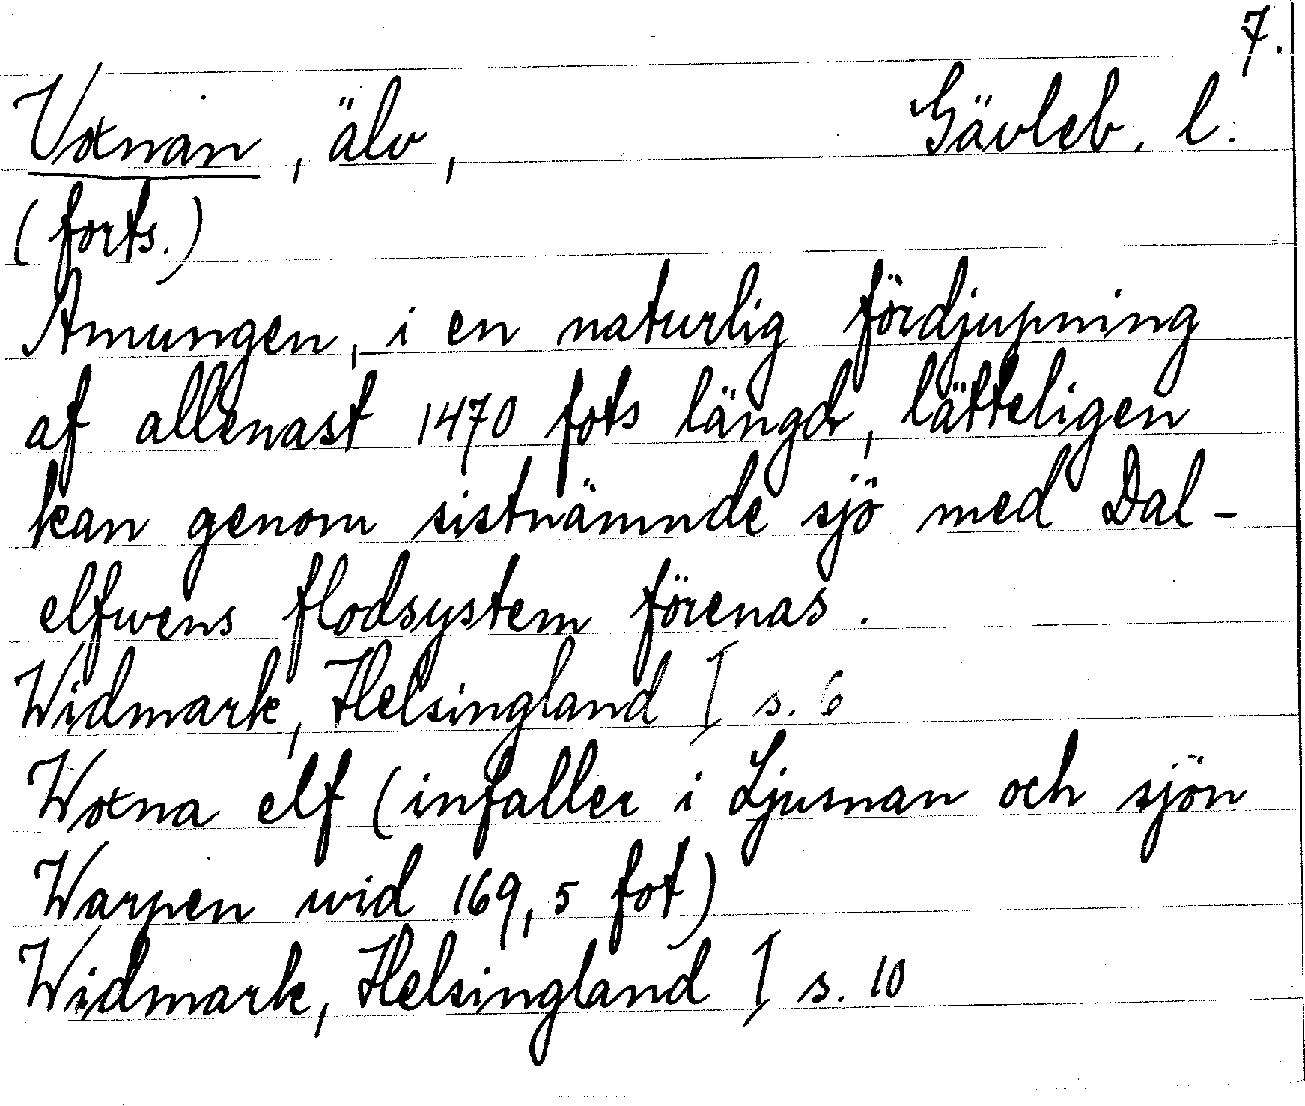 7.
Voxnan, älv, Gävleb. l.
(forts.)
Amungen, i en naturlig fördjupning
af allenast 1470 fots längd, lätteligen
kan genom sistnämnde sjö med Dal-
elfwens flodsystem förenas.
Widmark, Helsingland I s. 6
Woxna elf (infaller i Ljusnan och sjön
Warpen wid 169,5 fot)
Widmark, Helsingland I s. 10